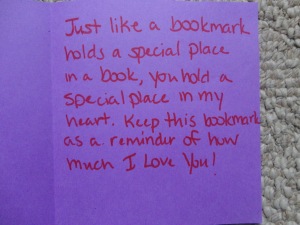 Just like a bookmark
holds a special place
in a book, you hold a
special place in my
heart. Keep this bookmark
as a reminder of how
much I Love You!